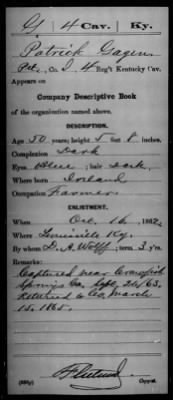 G | 4 Cav. | Ky.
Patrick Gagen
Pvt., Co. I, 4 Reg't Kentucky Cav.
Appears on
Company Descriptive Book
of the organization named above.
DESCRIPTION.
Age 50 years; height 5 feet 8 inches.
Complexion Dark
Eyes Blue; hair Dark
Where born Ireland
Occupation Farmer
ENLISTMENT.
When Oct. 16, 1862.
Where Louisville Ky.
By whom D. A. Wolff; term 3 y'rs.
Remarks:
Captured near Crawfish
Springs Ga. Sept. 21/63.
Returned to Co. March
15. 1865.
Copyist.